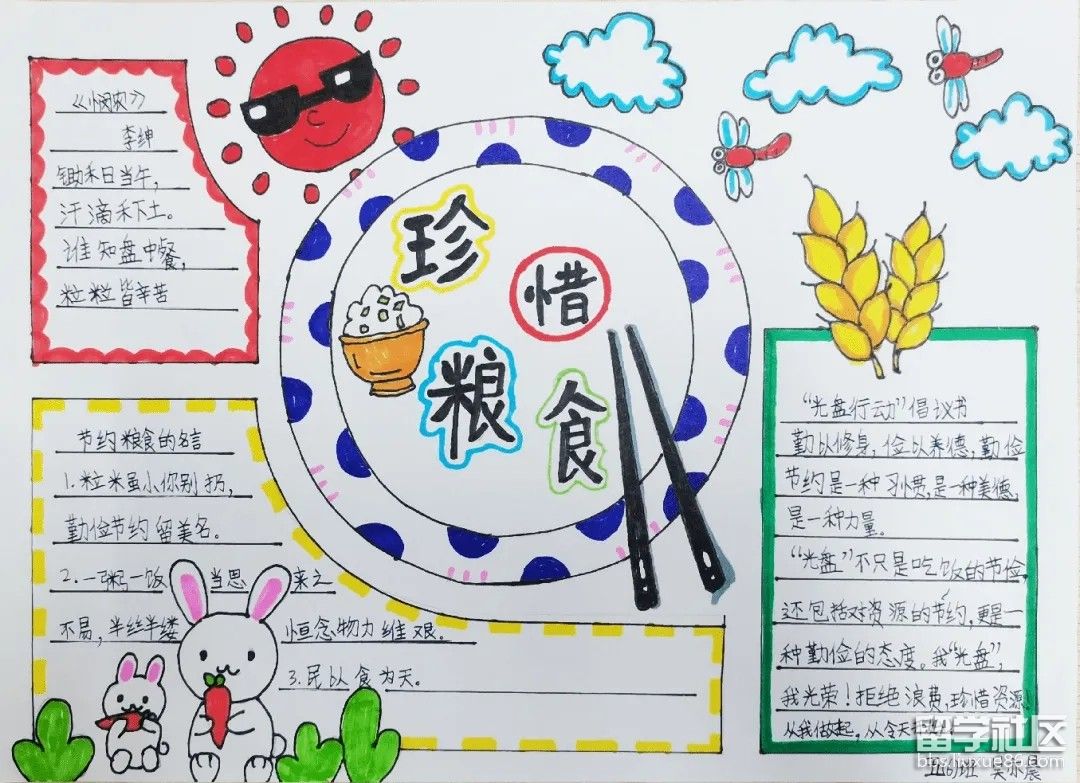 《悯农》
李绅
锄禾日当午，
汗滴禾下土。
谁知盘中餐，
粒粒皆辛苦
珍
惜
粮
食
节约粮食的名言
1.粒米虽小你别扔，
勤俭节约留美名。
2.一粥一饭 当思 来之
不易，半丝半缕 恒念物力维艰。
3.民以食为天。
"光盘行动"倡议书
勤以修身，俭以养德，勤俭
节约是一种习惯，是一种美德，
是一种力量。
"光盘"不只是吃饭的节俭，
还包括对资源的节约，更是一
种勤俭的态度。我"光盘"，
我光荣！拒绝浪费，珍惜资源！
从我做起，从今天
留学社区
bbs.liuxue86.com